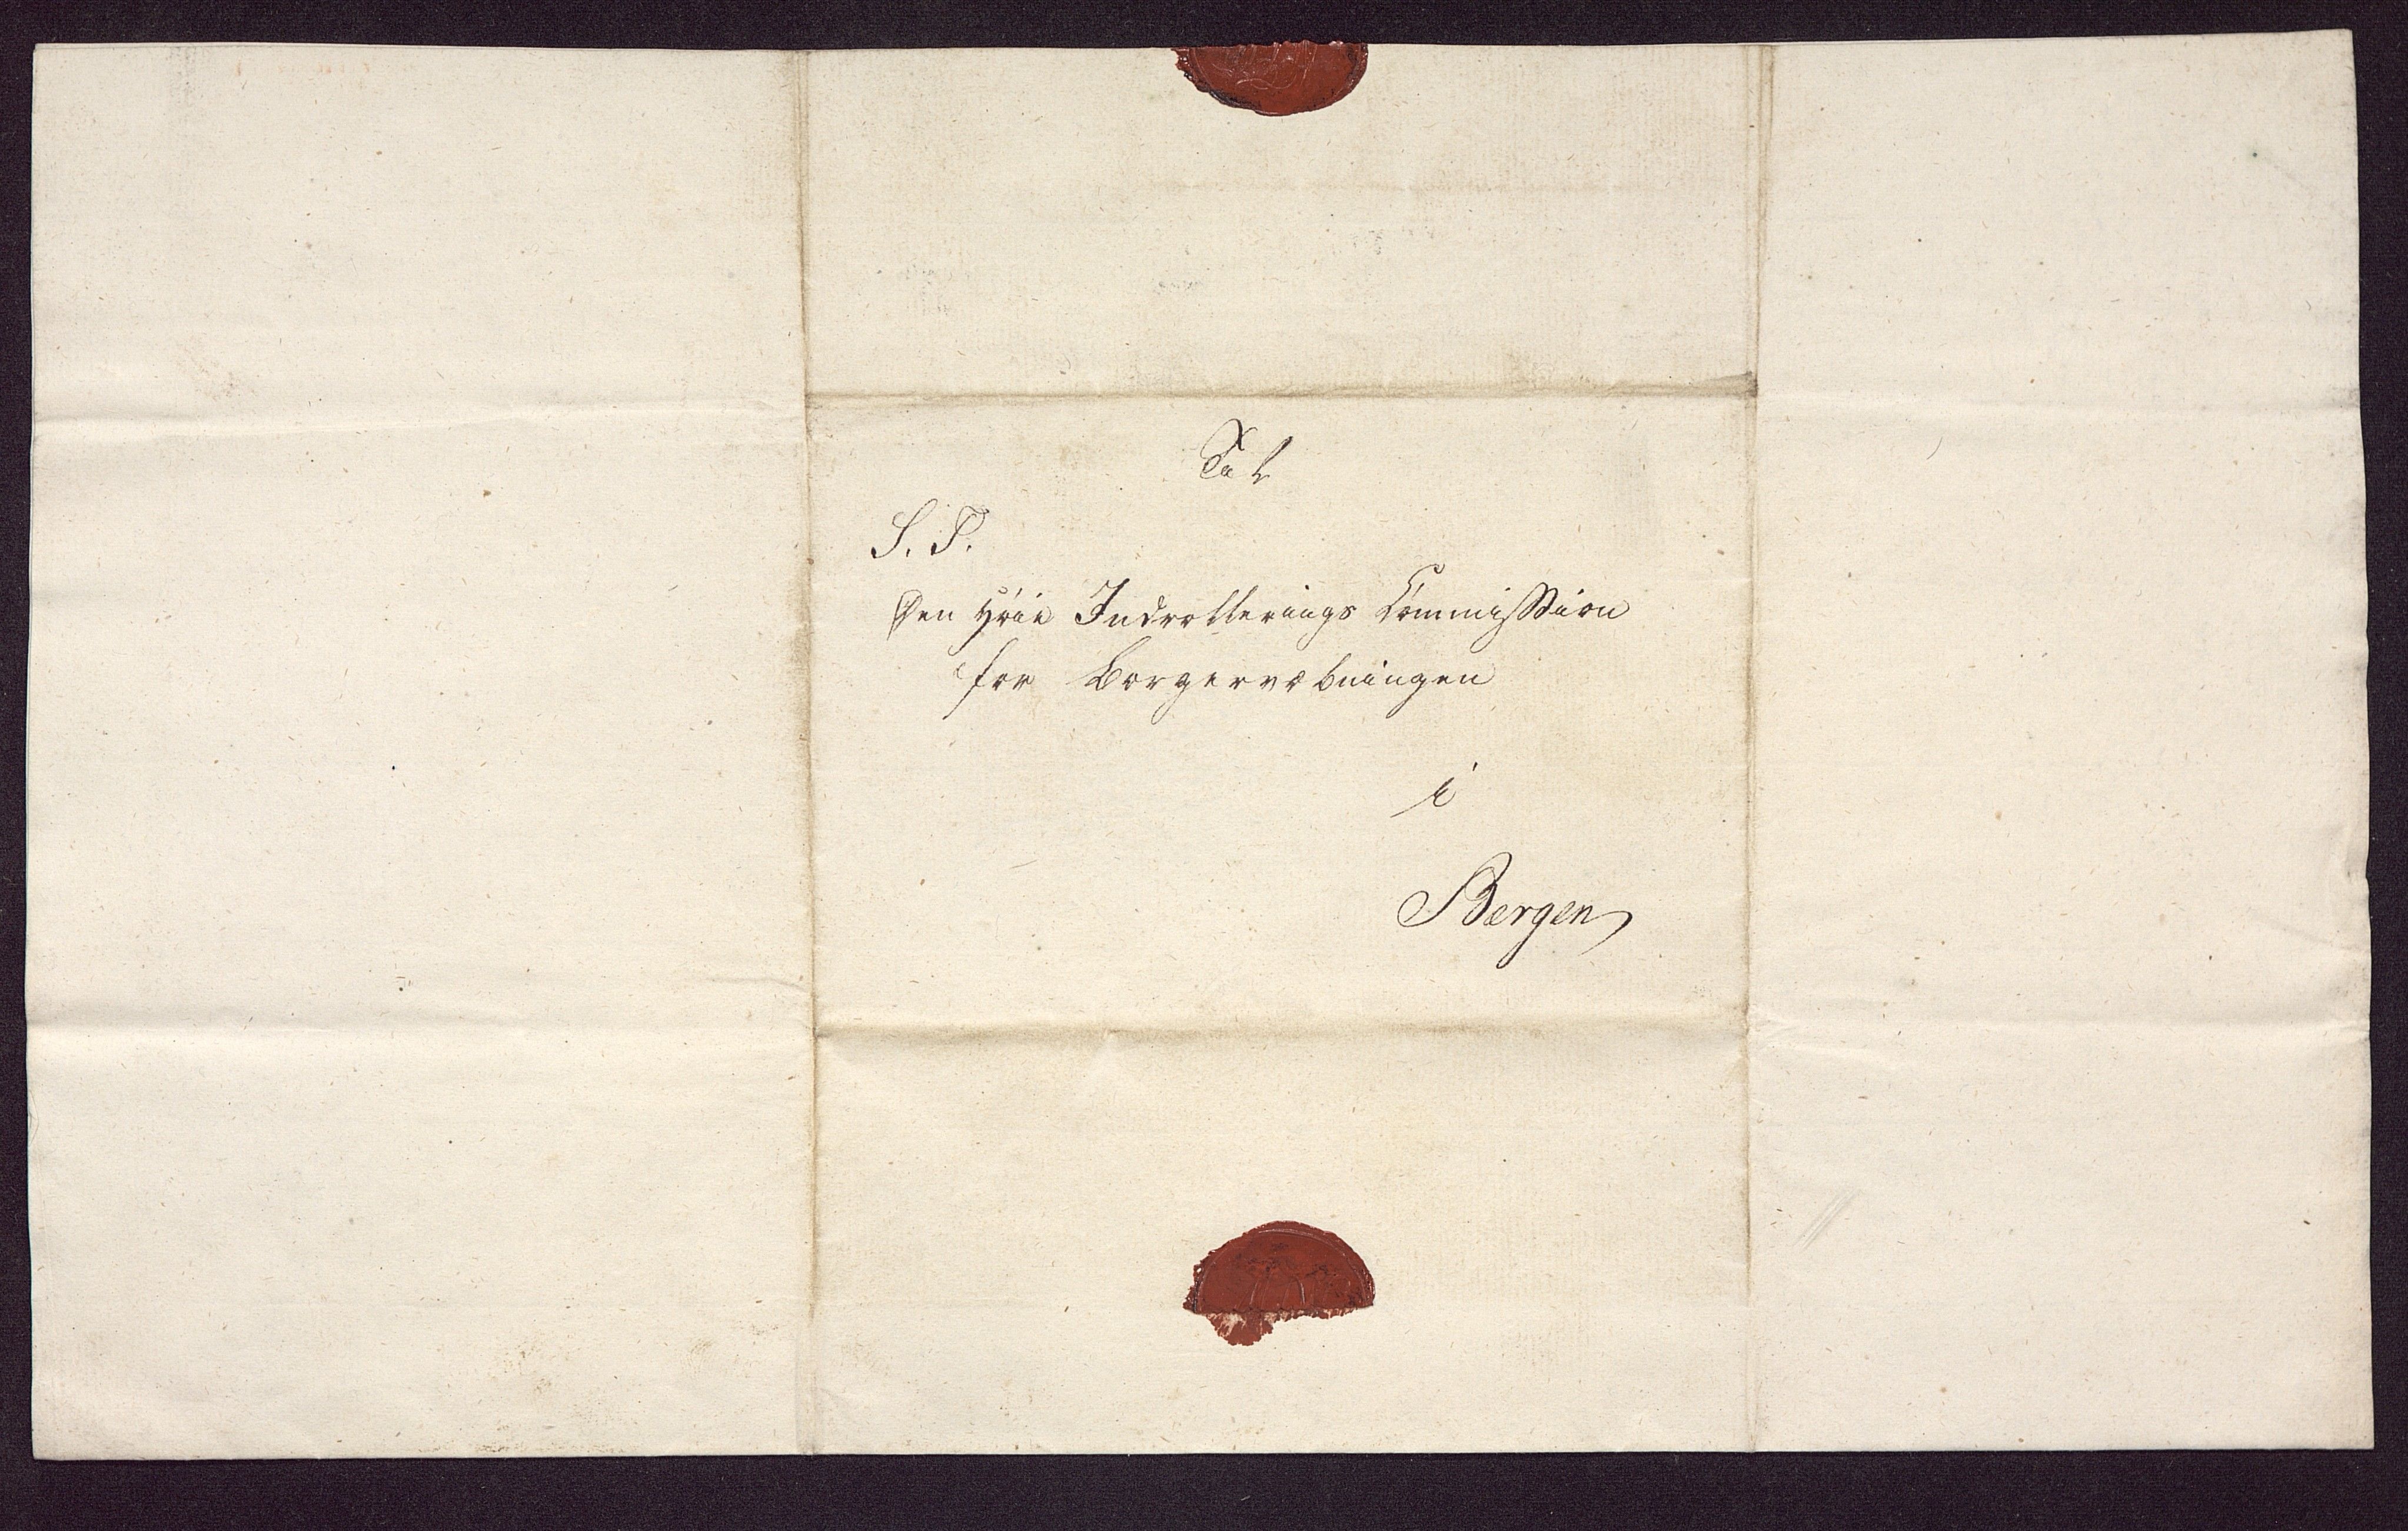 Til
S. T.
Den Høie Indrotterings Commission
for Borgervæbningen
i
Bergen